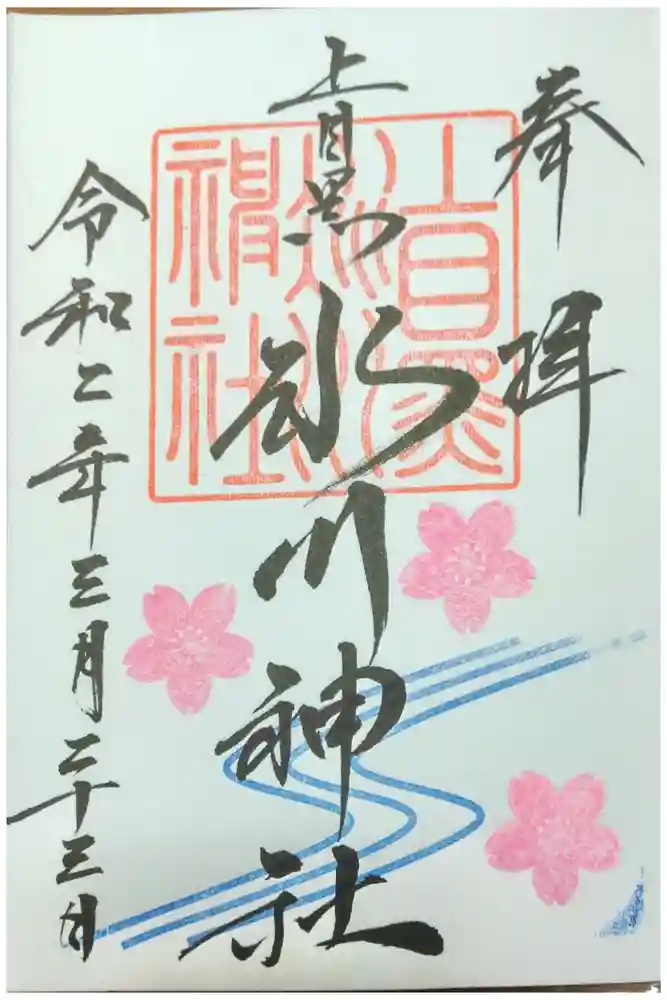 奉拝
上目黒氷川神社
上目黒氷川神社
令和二年三月二十三日